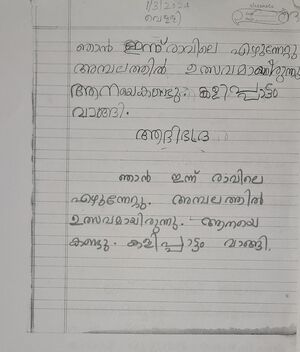 1/3/2024
വെള്ളി
ഞാൻ ഇന്ന് രാവിലെ എഴുന്നേറ്റു
അമ്പലത്തിൽ ഉത്സവമായിരുന്നു
ആനയെകണ്ടു. കളിപ്പാട്ടം
വാങ്ങി.
ആദിഭദ്ര
ഞാൻ ഇന്ന് രാവിലെ
എഴുന്നേറ്റു. അമ്പലത്തിൽ
ഉത്സവമായിരുന്നു. ആനയെ
കണ്ടു. കളിപ്പാട്ടം വാങ്ങി.